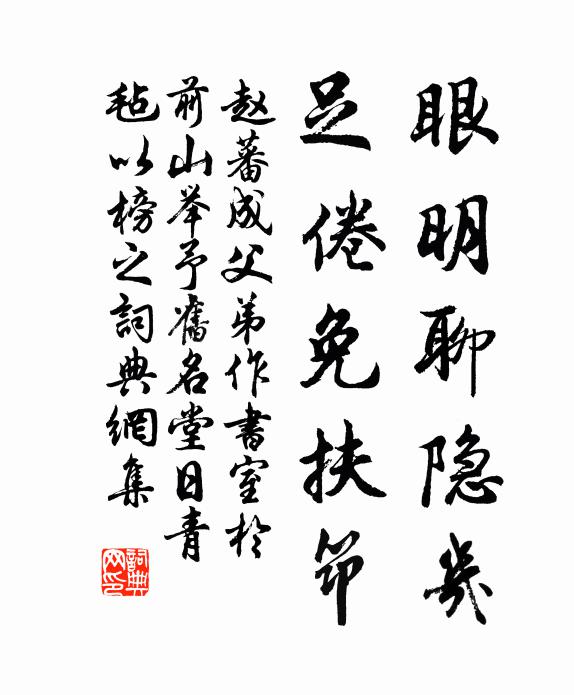 眼明聊隐几
足倦免扶筇
赵蕃成父弟作書室於
前山举予舊名堂日青
毡以榜之詞典網集
詞典网印